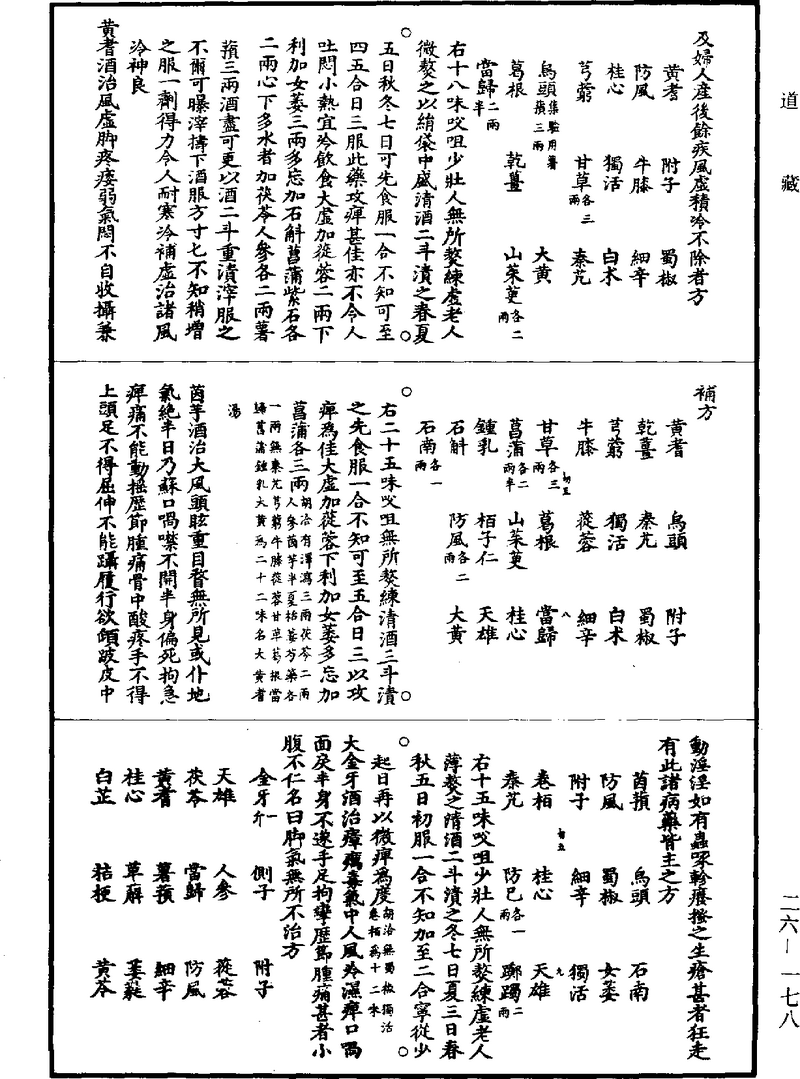 道藏
及婦人産後餘疾風虛積冷不除者方
黃耆 附子 蜀椒
防風 牛膝 細辛
桂心 獨活 白朮
芎藭 甘草各三兩 秦艽
烏頭集驗用薯蕷三兩 大黃
葛根 乾薑 山茱萸各二兩
當歸二兩半
右十八味㕮咀少壯人無所熬練虛老人
微熬之以絹袋中盛清酒二斗漬之春夏
五日秋冬七日可先食服一合不知可至
四五合日三服此藥攻痺甚佳亦不令人
吐悶小熱宜冷飲食大虛加蓯蓉二兩下
利加女萎三兩多忘加石斛菖蒲紫石各
二兩心下多水者加茯苓人參各二兩薯
蕷三兩酒盡可更以酒二斗重漬滓服之
不爾可曝滓擣下酒服方寸匕不知稍增
之服一劑得力令人耐寒冷補虛治諸風
冷神良
黃耆酒治風虛脚疼痿弱氣悶不自收攝兼
補方
黃耆 烏頭 附子
乾薑 秦艽 蜀椒
芎藭 獨活 白朮
牛膝 蓯蓉 細辛
甘草各三兩 葛根 當歸
菖蒲各二兩半 山茱萸 桂心
鍾乳 栢子仁 天雄
石斛 防風各二兩 大黃
石南各一兩
右二十五味㕮咀無所熬練清酒三斗漬
之先食服一合不知可至五合日三以攻
痺為佳大虛加蓯蓉下利加女萎多忘加
菖蒲各三兩胡洽有澤瀉三兩茯苓二兩人參茵芋半夏栝蔞芍藥各
一兩無秦艽芎藭牛膝蓯蓉甘草葛根當歸菖蒲鍾乳大黃為二十二味名大黃耆
湯
茵芋酒治大風頭眩重目瞀無所見或仆地
氣絕半日乃蘇口喎噤不開半身偏死拘急
痺痛不能動搖歷節腫痛骨中酸疼手不得
上頭足不得屈伸不能躡履行欲傾跛皮中
動淫淫如有蟲啄軫癢搔之生瘡甚者狂走
有此諸病藥皆主之方
茵蕷 烏頭 石南
防風 蜀椒 女萎
附子 細辛 獨活
卷栢 桂心 天雄
秦艽 防巳各一兩 躑躅二兩
右十五味㕮咀少壯人無所熬練虛老人
薄熬之清酒二斗漬之冬七日夏三日春
秋五日初服一合不知加至二合寧從少
起日再以微痺為度胡洽無蜀椒獨活卷栢為十二味
大金牙酒治瘴癘毒氣中人風冷濕痺口喎
面戾半身不遂手足拘攣歷節腫痛甚者小
腹不仁名曰脚氣無所不治方
金牙一斤 側子 附子
天雄 人參 蓯蓉
茯苓 當歸 防風
黃耆 薯蕷 細辛
桂心 草薢 葳蕤
白芷 桔梗 黃芩
二六－一七八